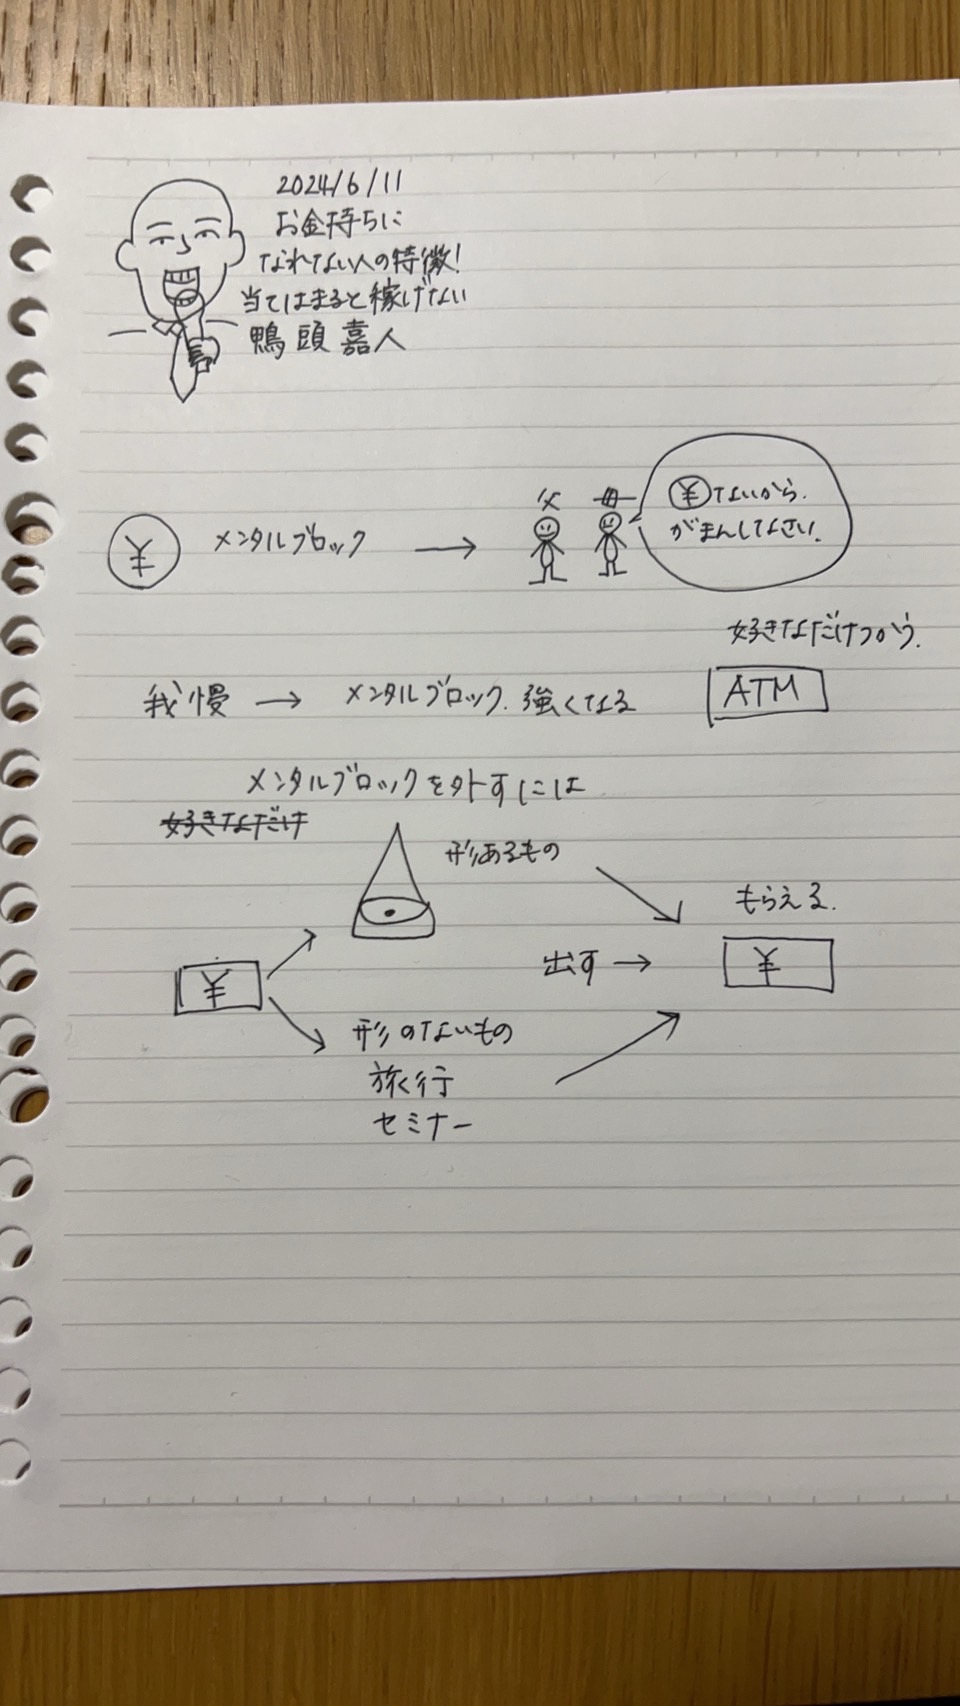 2024/6/11
お金持ちに
なれない人の特徴!
当てはまると稼げない
鴨頭嘉人
父 母
¥ないから.
がまんしてなさい.
¥ メンタルブロック →
好きなだけつかう.
我慢 → メンタルブロック. 強くなる
ATM
メンタルブロックを外すには
好きなだけ
形あるもの
もらえる.
¥
出す →
¥
形のないもの
旅行
セミナー